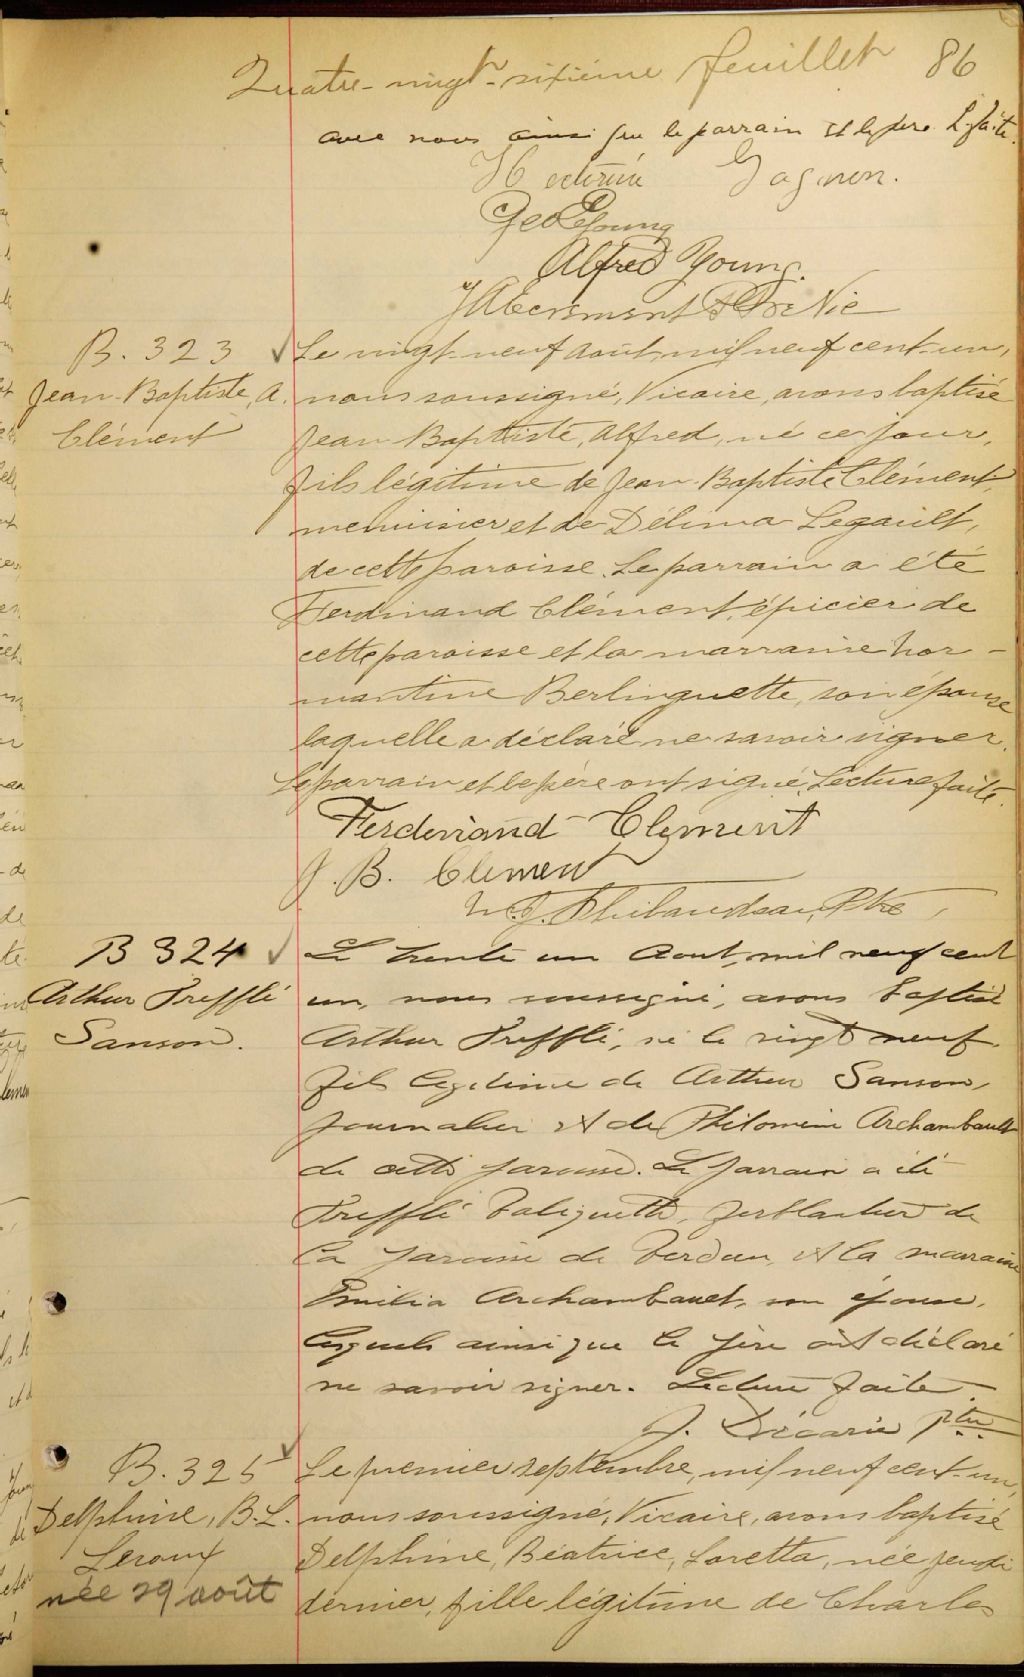 Quatre-vingt-sixième feuillet 86
avec nous ainsi que le parrain et le père. L. faite.
Gagnon.
Geo Young
Alfred Young.
Ptre Vic
B. 323
Jean-Baptiste, A.
Clément
Le vingt-neuf août, mil neuf cent-un,
nous soussigné, Vicaire, avons baptisé
Jean-Baptiste, Alfred, né ce jour,
fils légitime de Jean-Baptiste Clément,
menuisier et de Délima Legault,
de cette paroisse. Le parrain a été
Ferdinand Clément, épicier de
cette paroisse et la marraine hor-
mantine Berlinguette, son épouse
laquelle a déclaré ne savoir signer.
Le parrain et le père ont signé. Lecture faite.
Ferdinand Clement
J. B. Clement
Thibaudeau, Ptre
B 324
Arthur Trefflé
Sanson.
Le trente un Aout, mil neuf cent
un, nous soussigné, avons baptisé
Arthur Trefflé, né le vingt neuf
fils légitime de Arthur Sanson,
journalier et de Philomène Archambault
de cette paroisse. Le parrain a été
Trefflé Taliquette, ferblantier de
la paroisse de Verdun, et la marraine
Emilia Archambault, son épouse,
lesquels ainsi que le père ont déclaré
ne savoir signer. Lecture faite.
J. Décarie Ptre
B. 325
Delphine, B. L.
Leroux
née 29 août
Le premier septembre, mil neuf cent-un,
nous soussigné, Vicaire, avons baptisé
Delphine, Béatrice, Loretta, née jeudi
dernier, fille légitime de Charles